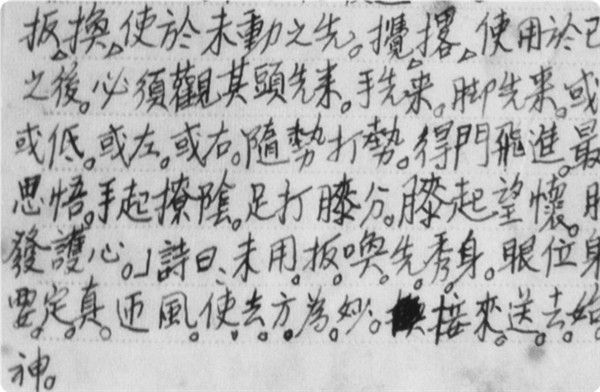 扳換使於未動之先。攪撂使用於已
之後。必須觀其頭先来。手先来。脚先来。或
或低。或左。或右。隨勢打勢。得門飛進。最
思悟。手起撩陰。足打膝分。膝起望懷。肘
發護心。」詩曰、未用。扳。喚。先。秀。身。眼位身
要。定。真。迊風。使。去。方。為。妙。接來。送去。始
神。